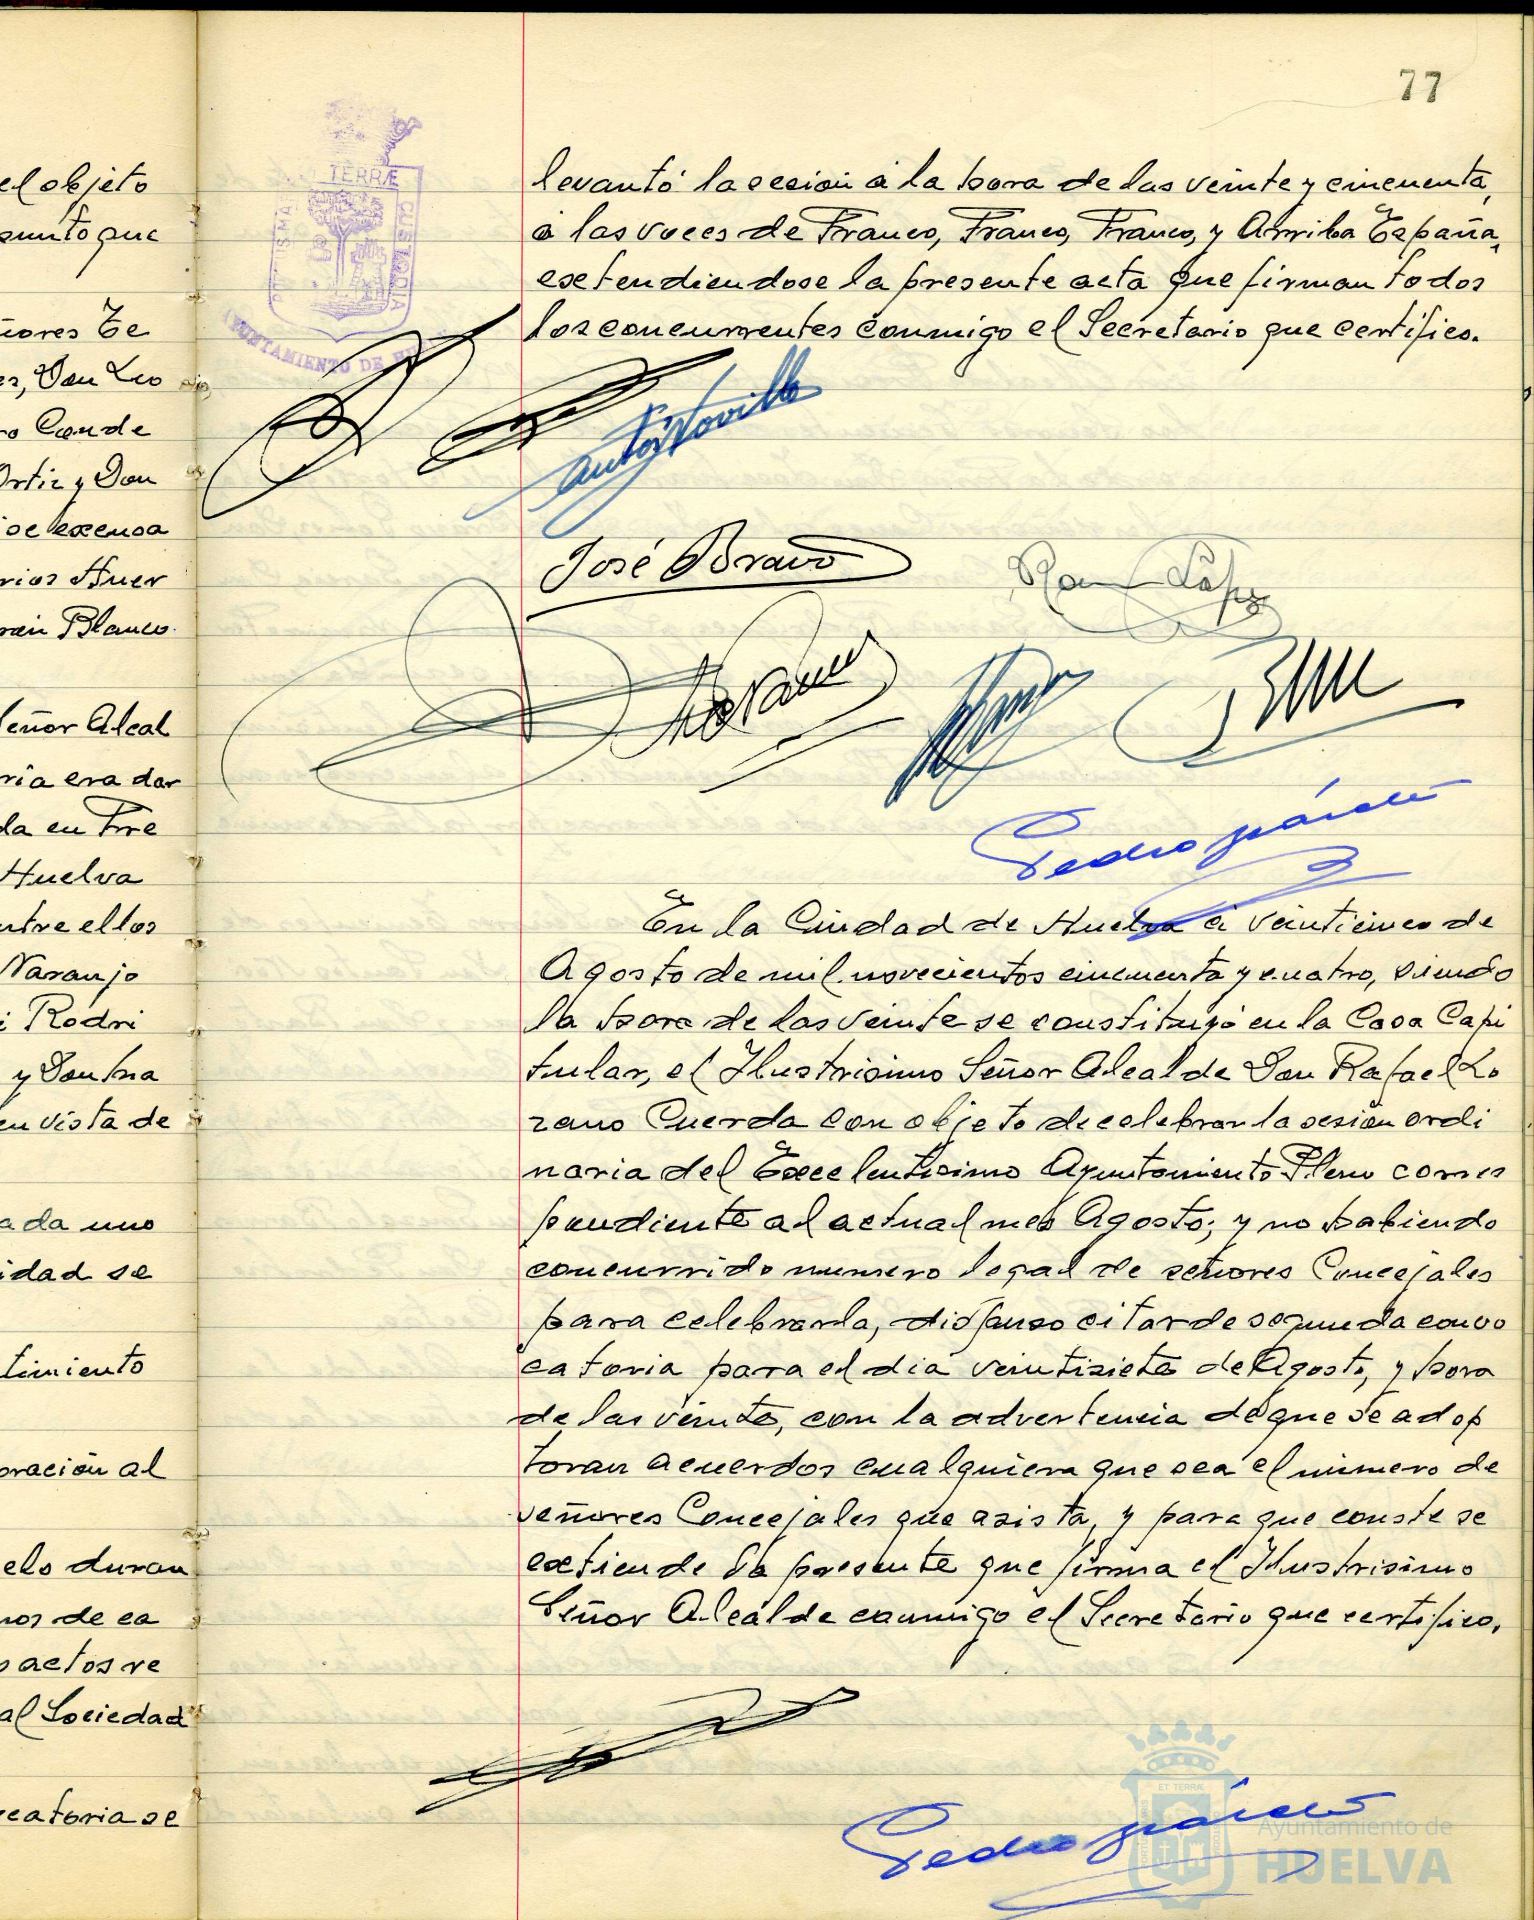 77
el objeto
sunto que
ñores Te
es, Don Leo
ro Conde
Ortiz y Don
se excusa
rios Huer
rain Blanco.
Señor Alcal
ria era dar
da en Tre
Huelva
ntre ellos
Naranjo
i Rodri
y Don Ina
en vista de
ada uno
idad se
timiento
oración al
elo duran
nos de ca
o actos re
al Sociedad
catoria se
TERRÆ
CUSTODIA
AYUNTAMIENTO DE
levantó la sesion a la hora de las veinte y cincuenta,
a las voces de Franco, Franco, Franco, y Arriba España,
extendiendose la presente acta que firman todos
los concurrentes conmigo el Secretario que certifico.
José Bravo
Ramon López
En la Ciudad de Huelva a veinticinco de
Agosto de mil novecientos cincuenta y cuatro, siendo
la hora de las veinte se constituyó en la Casa Capi
tular, el Ilustrisimo Señor Alcalde Don Rafael Lo
zano Cuerda con objeto de celebrar la sesión ordi
naria del Excelentisimo Ayuntamiento Pleno corres
pondiente al actual mes Agosto; y no habiendo
concurrido numero legal de señores Concejales
para celebrarla, dispuso citar de segunda convo
catoria para el dia veintisiete de Agosto, y hora
de las veinte, con la advertencia de que se adop
toran acuerdos cualquiera que sea el numero de
señores Concejales que asista, y para que conste se
extiende la presente que firma el Ilustrisimo
Señor Alcalde conmigo el Secretario que certifico.
ET TERRÆ
Ayuntamiento de
HUELVA